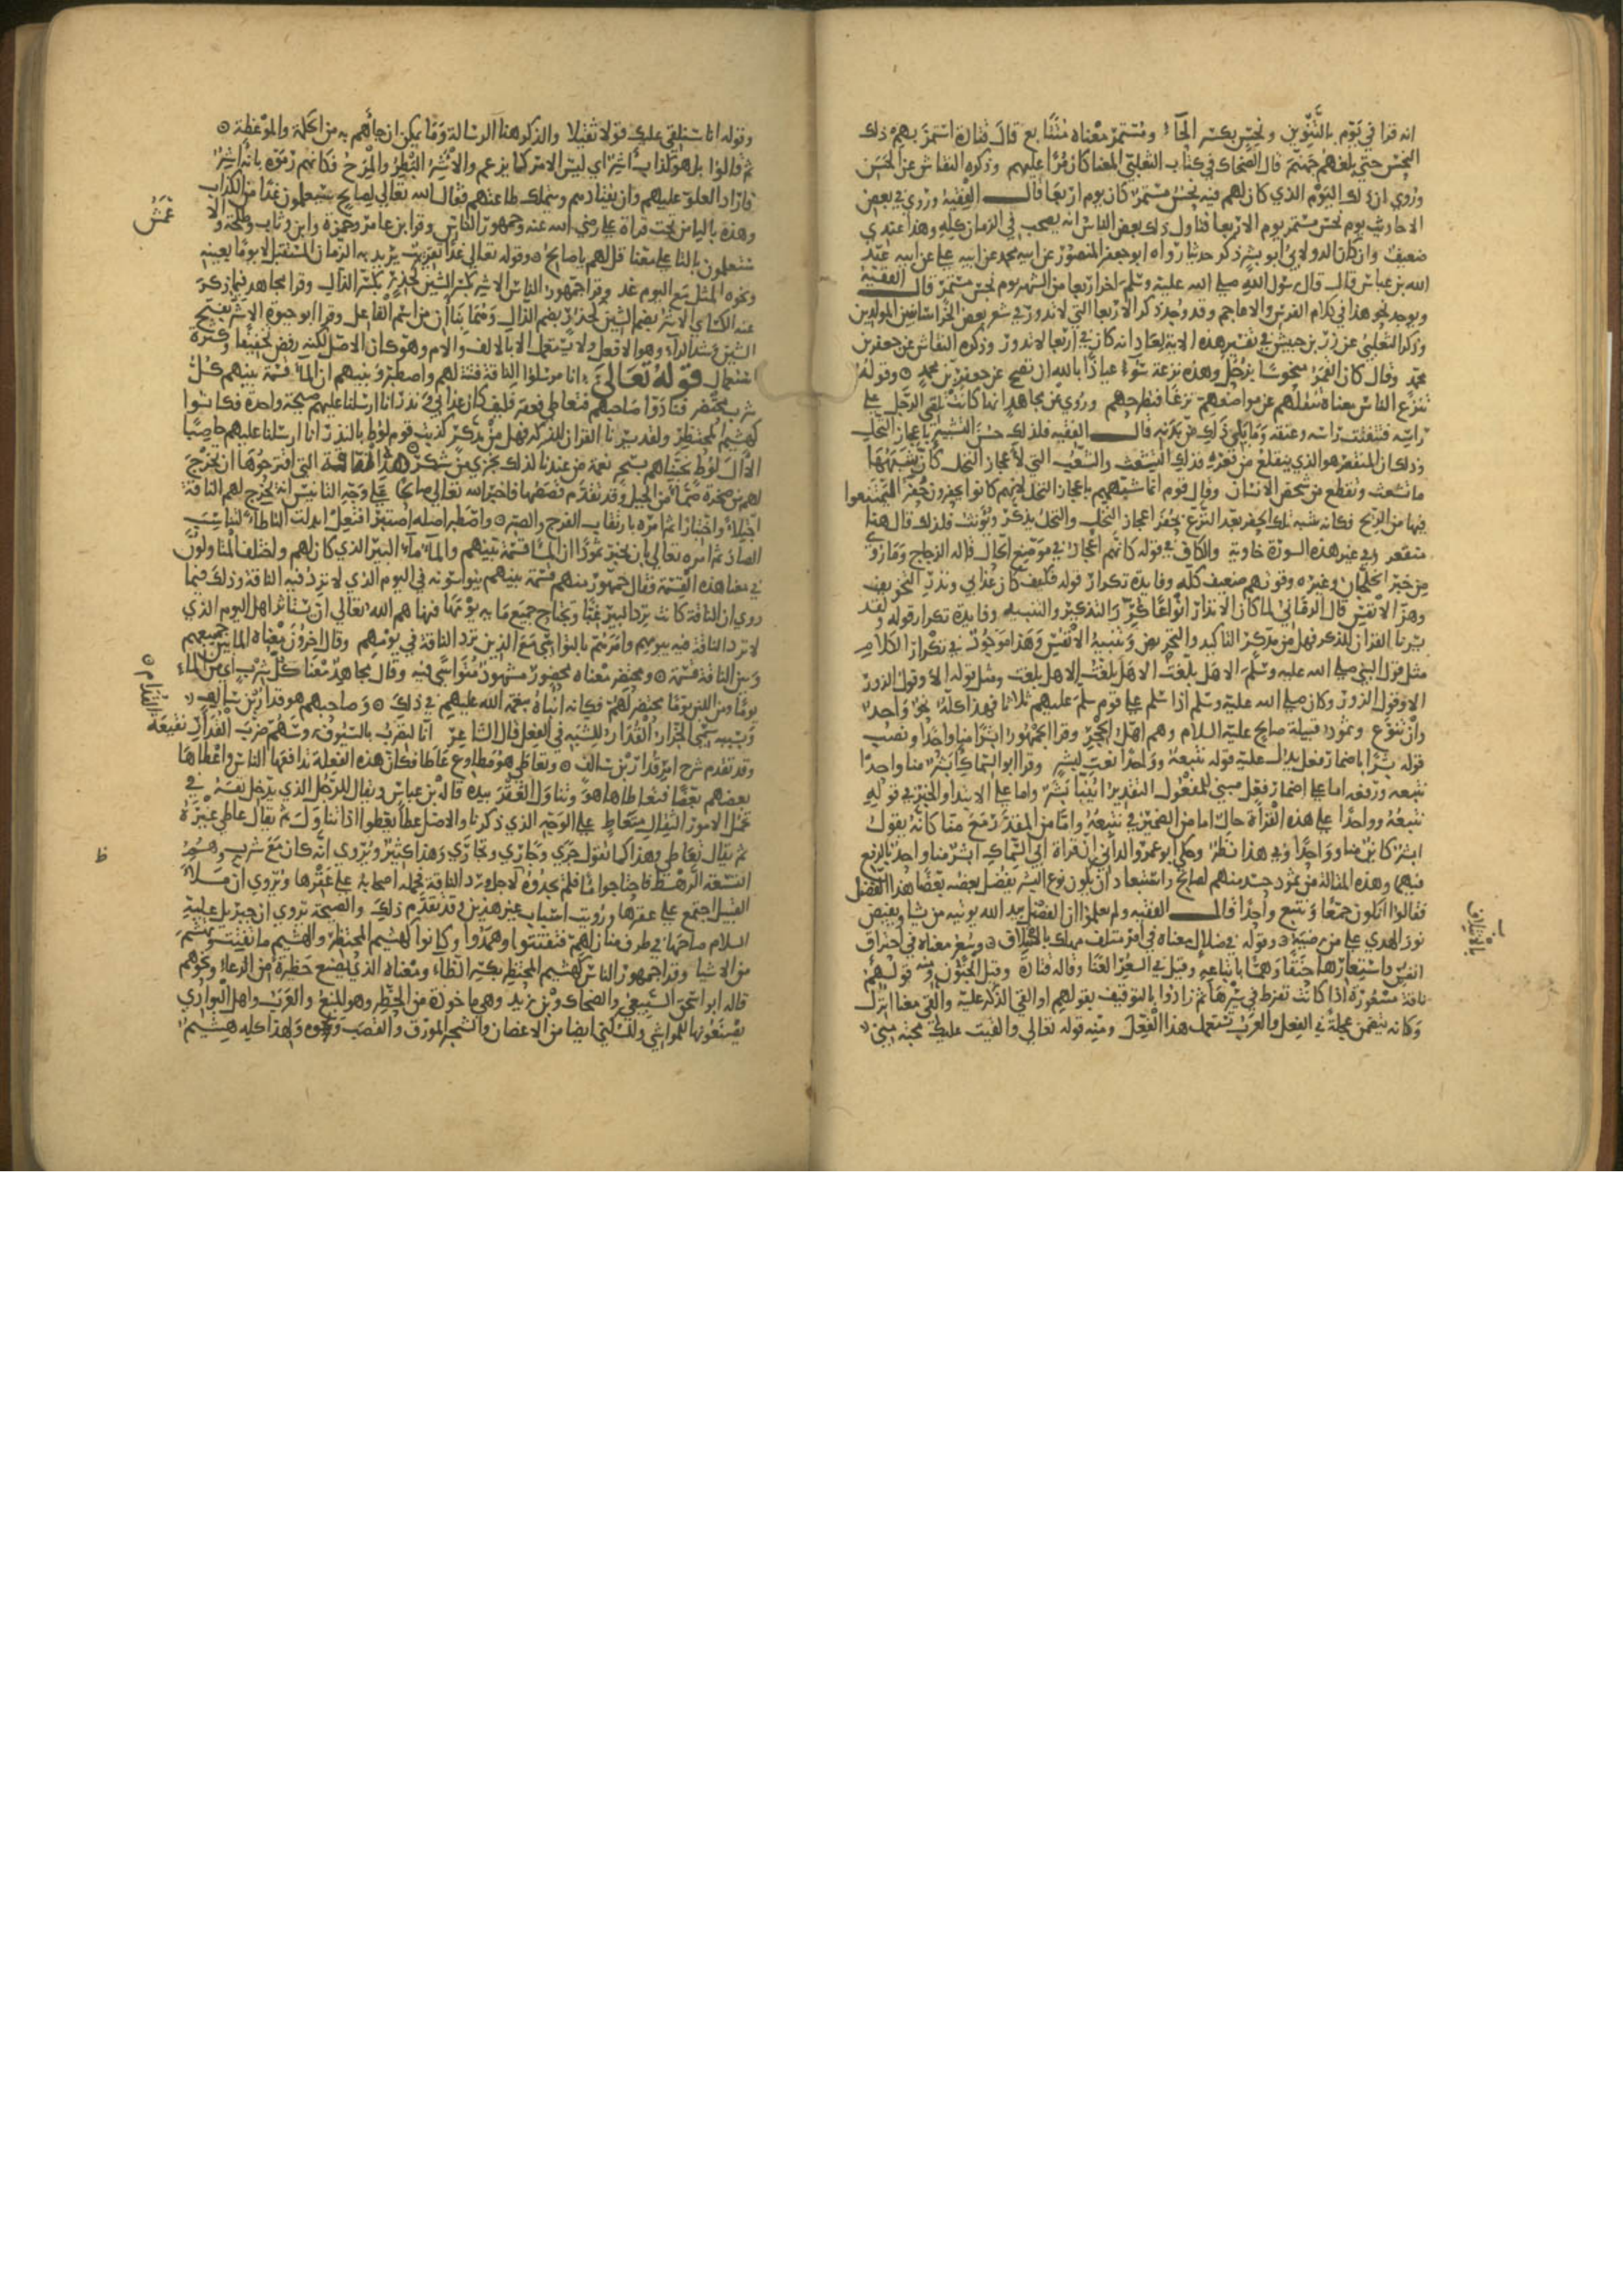 انه قرا في يوم بالتنوين ونحس بكسر الحاء ومستمر معناه متتابع قال قتادة استمر بهم ذلك
النحس حتى بلغهم جهنم قال الضحاك في كتاب الثعلبي المعنى كان مرا عليهم وذكره النقاش عن الحسن
وروي ان ذلك اليوم الذي كان لهم فيه نحس مستمر كان يوم اربعا قال الفقيه وروي في بعض
الاحاديث يوم نحس مستمر يوم الاربعا فتاول ذلك بعض الناس انه يصحب في الزمان كله وهذا عندي
ضعيف وان كان الدولابي ابو بشر ذكر حديثا رواه ابو جعفر المنصور عن ابيه محمد عن ابيه علي عن ابيه عبد
الله بن عباس قال قال رسول الله صلى الله عليه وسلم اخر اربعا من الشهر يوم نحس مستمر قال الفقيه
ويوجد نحو هذا في كلام الفرس والاعاجم وقد وجد ذكر الاربعا التي لا تدور في شعر بعض الخراسانيين المولدين
وذكر الثعلبي عن زر بن حبيش في تفسير هذه الاية لعاد انه كان في اربعا لا تدور وذكره النقاش عن جعفر بن
محمد وقال كان القمر منحوسا بزحل وهذه نزعة سوء عياذا بالله ان تصح عن جعفر بن محمد وقوله
تنزع الناس معناه تنقلهم عن مواضعهم نزعا فتطرحهم وروي عن مجاهد انها كانت تلقي الرجل على
راسه فتفتت راسه وعنقه وما يلي ذلك من بدنه قال الفقيه فلذلك حسن التشبيه باعجاز النخل
وذلك ان المنقعر هو الذي ينقلع من قعره فذلك التشعث والتشعب التي لاعجاز النخل كان يشبهها
ما تشعث وتقطع من شخص الانسان وقال قوم انما شبههم باعجاز النخل لانهم كانوا يحفرون حفرا ليمتنعوا
فيها من الريح فكانه شبه تلك الحفر بعد النزع بحفر اعجاز النخل والنخل يذكر ويؤنث فلذلك قال هنا
منقعر وفي غير هذه السورة خاوية والكاف في قوله كانهم اعجاز في موضع الحال قاله الزجاج وما روي
من خبر الخلجان وغيره وقوتهم ضعيف كله وفايدة تكرار قوله فكيف كان عذابي ونذر التخويف
وهز الانفس قال الرماني لما كان الانذار انواعا كرر التذكير والتنبيه وفايدة تكرار قوله ولقد
يسرنا القران للذكر فهل من مدكر التاكيد والتحريض وتنبيه الانفس وهذا موجود في تكرار الكلام
مثل قول النبي صلى الله عليه وسلم الا هل بلغت الا هل بلغت الا هل بلغت ومثل قوله الا وقول الزور
الا وقول الزور وكان صلى الله عليه وسلم اذا سلم على قوم سلم عليهم ثلاثا فهذا كله نحو واحد
وان تنوع وثمود قبيلة صالح عليه السلام وهم اهل الحجر وقرا الجمهور ابشرا منا واحدا ونصب
قوله بشرا باضمار فعل يدل عليه قوله نتبعه وواحدا نعت لبشر وقرا ابو السماك ابشر منا واحدا
نتبعه ورفعه اما على اضمار فعل مبني للمفعول التقدير اينبا بشر واما على الابتدا والخبر في قوله
نتبعه وواحدا على هذه القراة حال اما من الضمير في نتبعه واما من المقدر مع منا كانه يقول
ابشر كاين منا وواحدا وفي هذا نظر وحكى ابو عمرو الداني ان قراة ابي السماك ابشر منا واحد بالرفع
فيهما وهذه المقالة من ثمود حسد منهم لصالح واستبعاد ان يكون نوع البشر يفضل بعضه بعضا هذا الفضل
فقالوا انكون جمعا ونتبع واحدا قال الفقيه ولم يعلموا ان الفضل بيد الله يوتيه من يشا ويفيض
نور الهدى على من رضيه وقوله في ضلال معناه في امر متلف مهلك بالاتلاف وسعر معناه في احتراق
انفس واستعارها حنقا وهما باتباعه وقيل في السعر العنا وقاله قتادة وقيل الجنون ومنه قولهم
ناقة مسعورة اذا كانت تفرط في سيرها ثم زادوا بالتوقيف بقولهم اولقي الذكر عليه والقي معنا انزل
وكانه يتضمن عجلة في الفعل والعرب تستعمل هذا الفعل ومنه قوله تعالى والقيت عليك محبة مني
وقوله انا سنلقي عليك قولا ثقيلا والذكر هنا الرسالة وما يمكن ان جاهم به من الحكمة والموعظة
ثم قالوا بل هو كذاب اشر اي ليس الامر كما يزعم والاشر البطر والمرح فكانهم رموه بانه اشر
فاراد العلو عليهم وان يقتادهم ويتملك طاعتهم فقال الله تعالى لصالح سيعلمون غدا من الكذاب
وهذه بالياء من تحت قراة علي رضي الله عنه وجمهور الناس وقرا ابن عامر وحمزة وابن وثاب وطلحة والا
عمش
ستعلمون بالتا على معنى قل لهم يا صالح وقوله تعالى غدا تقريب يريد به الزمان المستقبل لا يوما بعينه
ونحوه المثل مع اليوم غد وقرا جمهور الناس الاشر بكسر الشين كحذر بكسر الذال وقرا مجاهد فيما ذكر
عنه الكسائي الاشر بضم الشين كحذر بضم الذال وهما بناان من اسم الفاعل وقرا ابو حيوة الاشر بفتح
الشين وشد الراء وهو الافعل ولا يستعمل الا بالالف واللام وهو كان الاصل لكنه رفض تخفيفا وكثرة
استعمال قوله تعالى انا مرسلوا الناقة فتنة لهم فارتقبهم واصطبر ونبيهم ان الماء قسمة بينهم كل
شرب محتضر فنادوا صاحبهم فتعاطى فعقر فكيف كان عذابي ونذر انا ارسلنا عليهم صيحة واحدة فكانوا
كهشيم المحتظر ولقد يسرنا القران للذكر فهل من مدكر كذبت قوم لوط بالنذر انا ارسلنا عليهم حاصبا
الا ال لوط نجيناهم بسحر نعمة من عندنا كذلك نجزي من شكر هذه الناقة التي اقترحوها ان تخرج
لهم من صخرة صما من الجبل وقد تقدم قصصها فاخبر الله تعالى صالحا على وجه التانيس انه يخرج لهم الناقة
ابتلاء واختبارا ثم امره بارتقاب الفرج والصبر واصطبر اصله اصتبر افتعل ابدلت التا طاء لتناسب
الصاد ثم امره تعالى بان يخبر ثمودا ان الما قسمة بينهم والماء ماء البير الذي كان لهم واختلف المتاولون
في معنى هذه القسمة فقال جمهور منهم قسمة بينهم يتواسونه في اليوم الذي لا ترد فيه الناقة وذلك فيما
روي ان الناقة كانت ترد البير غبا وتحتاج جميع ما به يومها فنهاهم الله تعالى ان يستاثر اهل اليوم الذي
لا ترد الناقة فيه بيومهم وامرهم بالتواسي مع الذين ترد الناقة في يومهم وقال اخرون معناه الما بين جميعهم
وبين الناقة قسمة ومحتضر معناه محضور مشهود متواسى فيه وقال مجاهد معنى كل شرب اي من الماء
يوما ومن اللبن يوما يحتضر لهم فكانه انباه بنعمة الله عليهم في ذلك وصاحبهم هو قدار بن سالف
وبسببه سمي الجزار القدار للشبه في الفعل قال الشاعر انا لنضرب بالسيوف روسهم ضرب القدار نقيعة
القدام
وقد تقدم شرح امر قدار بن سالف وتعاطى هو مطاوع عاطا فكان هذه الفعلة تدافعها الناس واعطاها
بعضهم بعضا فتعاطاها هو وتناول العقر بيده قاله بن عباس ويقال للرجل الذي يدخل نفسه في
تحمل الامور الثقال متعاط على الوجه الذي ذكرنا والاصل عطا يعطوا اذا تناول ثم يقال عاطى غيره
ثم يقال تعاطى وهذا كما تقول جرى وجارى وتجارى وهذا كثير ويروى انه كان مع شرب وهم
التسعة الرهط فاحتاجوا ماء فلم يجدوه لاجل ورد الناقة فحمله اصحابه على عقرها ويروى ان ملا
القبيل اجتمع على عقرها ورويت اسباب غير هذين وقد تقدم ذلك والصيحة تروى ان جبريل عليه
السلام صاحها في طرف منازلهم فتفتتوا وهمدوا وكانوا كهشيم المحتظر والهشيم ما تفتت وتهشم
من الاشيا وقرا جمهور الناس كهشيم المحتظر بكسر الظاء ومعناه الذي يصنع حظيرة من الرعاء ونحوهم
قاله ابو اسحق السبيعي والضحاك وبن زيد وهي ماخوذة من الحظر وهو المنع والعرب واهل البوادي
يصنعونها للمواشي وللسكنى ايضا من الاغصان والشجر المورق والقصب ونحوه ولهذا كله هشيم